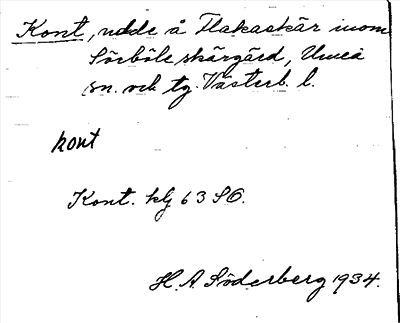 Kont, udde å Flakaskär inom
Sörböle skärgård, Umeå
sn. och tg. Västerb. l.
kont
Kont. klj 63 SO.
H. A. Söderberg 1934.